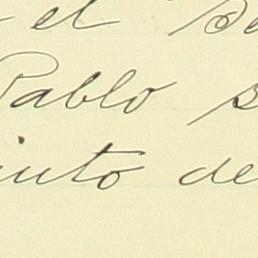 el
Pablo
into de